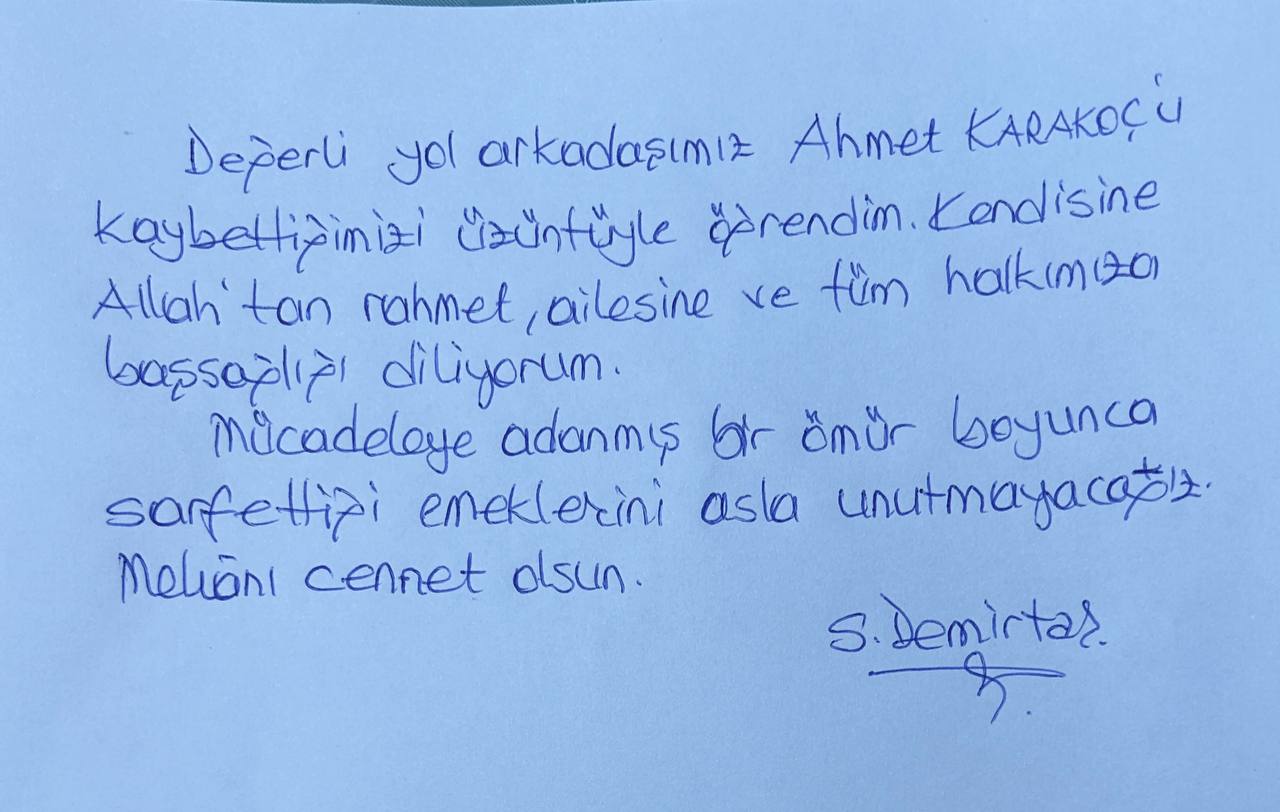 Değerli yol arkadaşımız Ahmet KARAKOÇ'u
kaybettiğimizi üzüntüyle öğrendim. Kendisine
Allah'tan rahmet, ailesine ve tüm halkımıza
başsağlığı diliyorum.
Mücadeleye adanmış bir ömür boyunca
sarfettiği emeklerini asla unutmayacağız.
Mekânı cennet olsun.
S. Demirtaş.